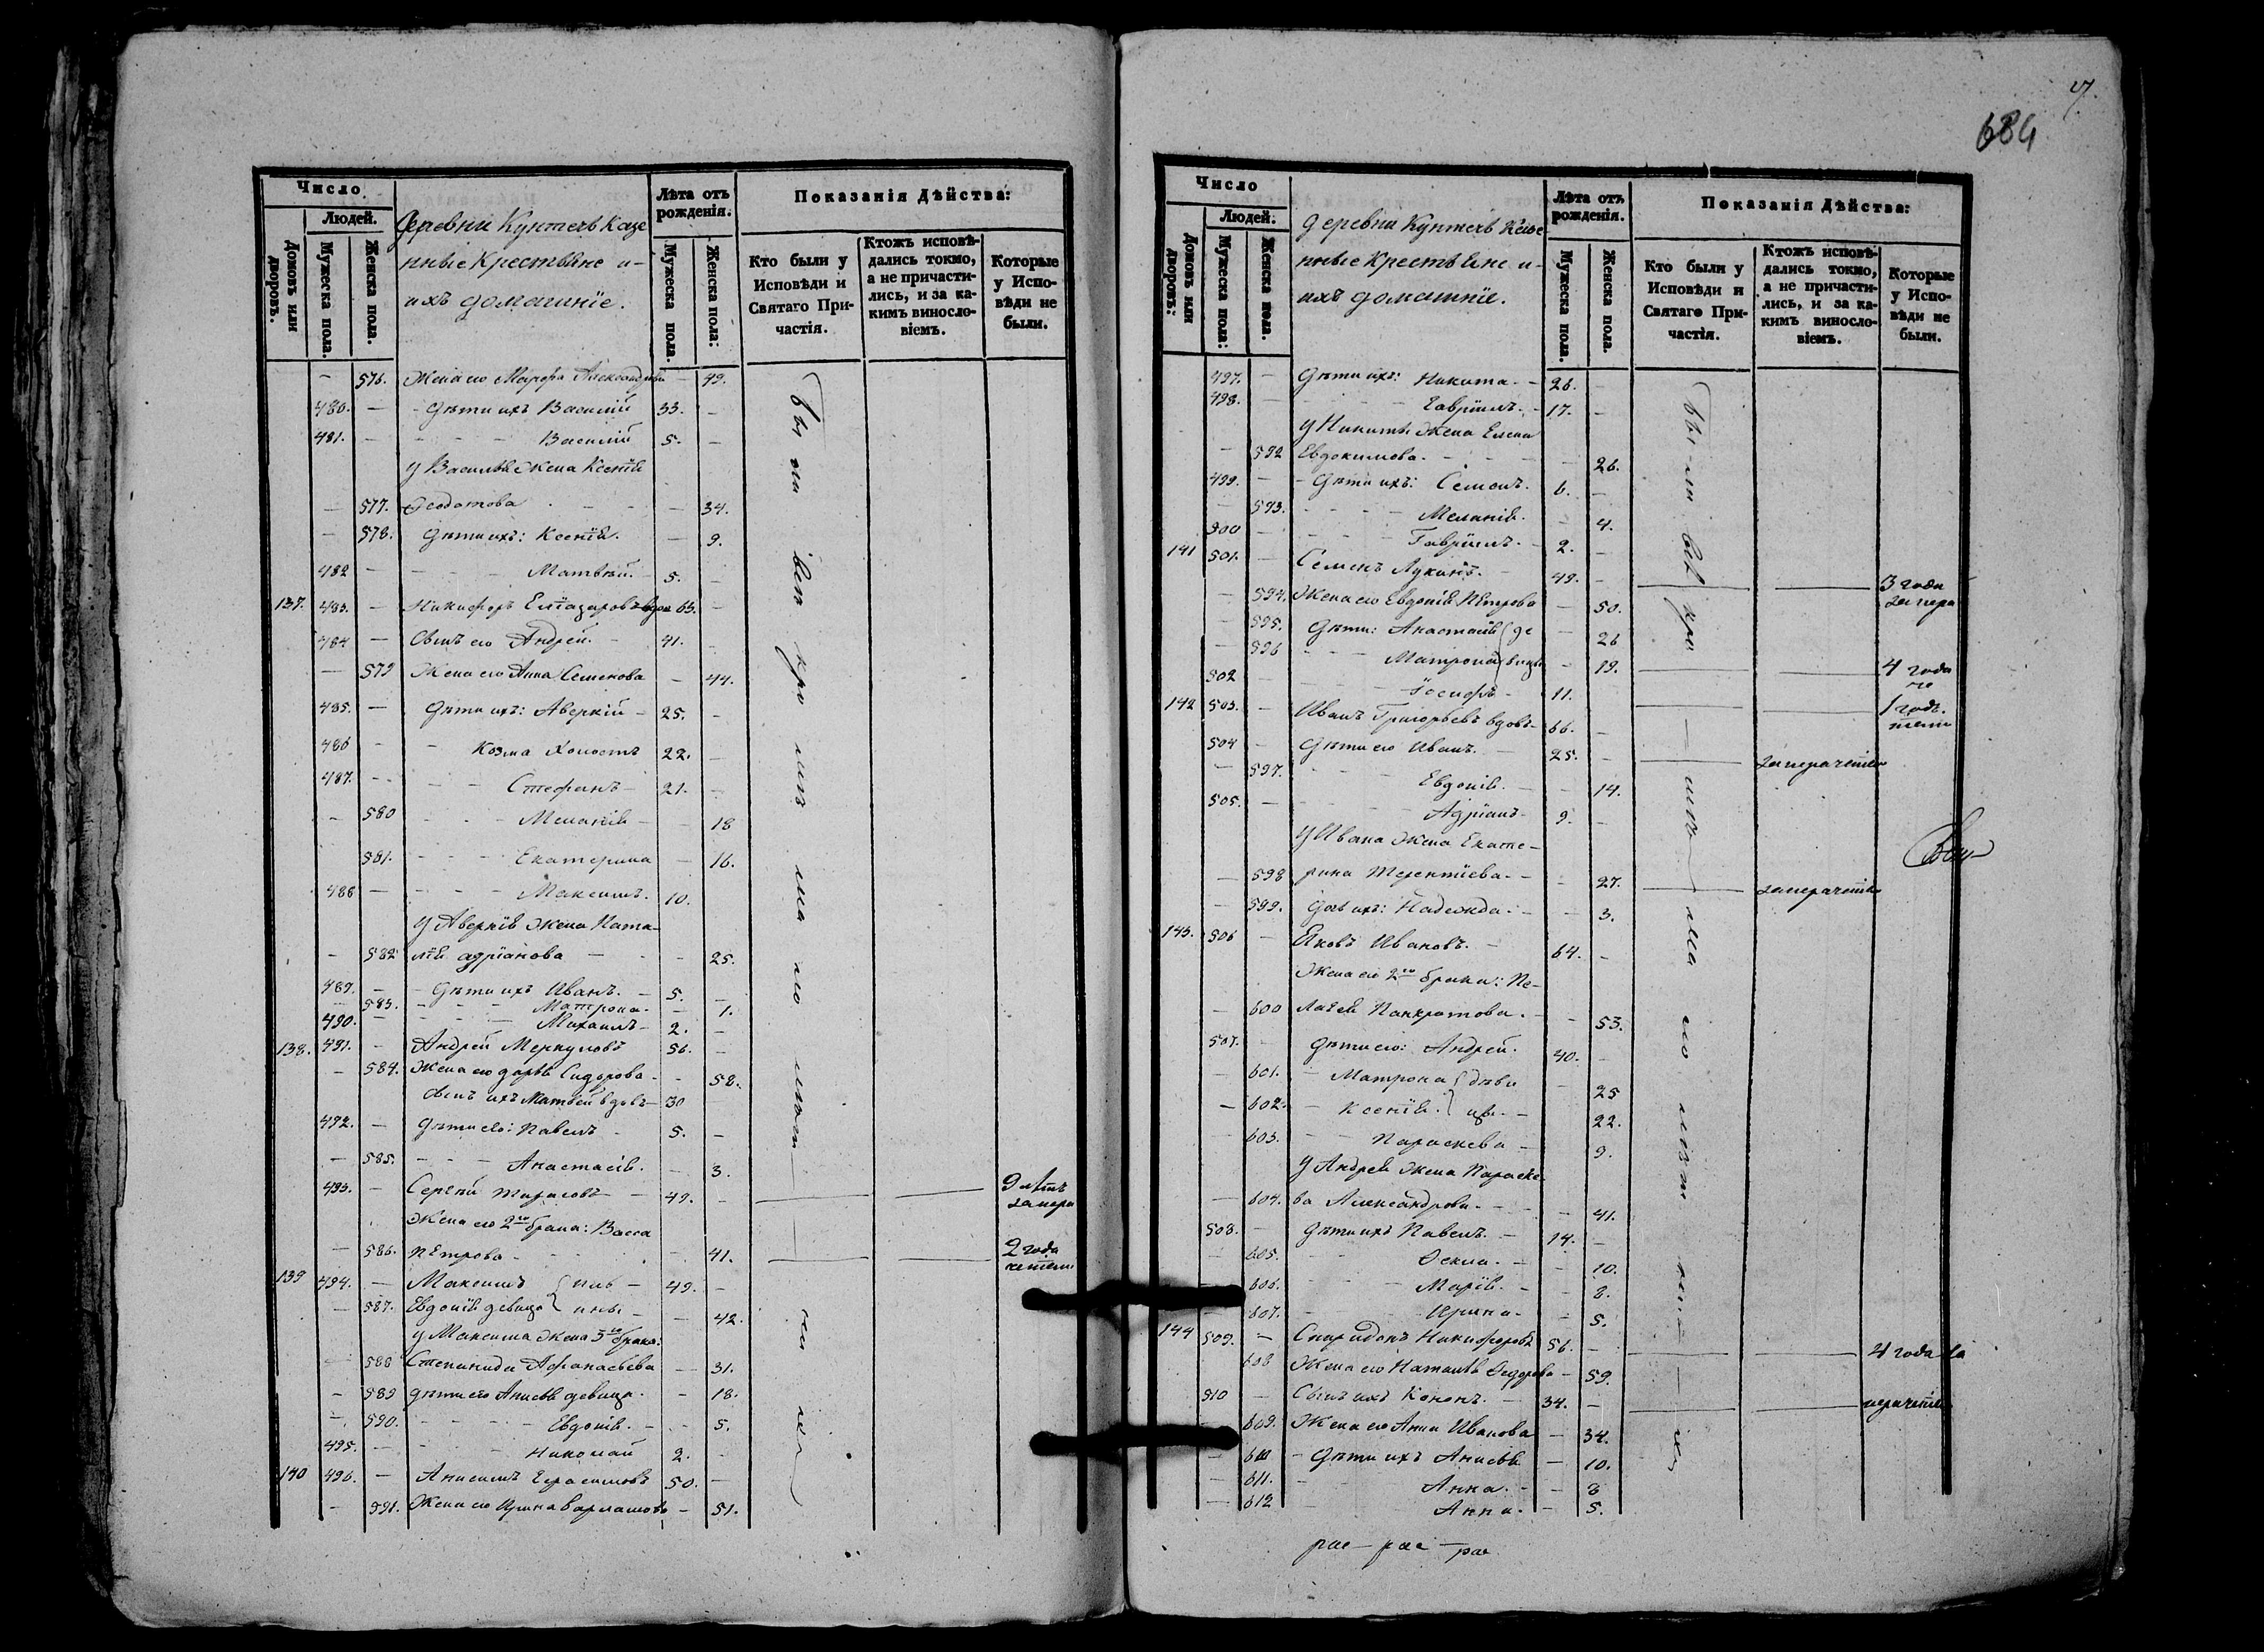 Число
Людей.
Домовъ или дворовъ.
Мужеска пола.
Женска пола.
Деревни Кунтечь Казе
нныіе Крестьяне и
ихъ домашніе.
Лѣта отъ рожденія.
Мужеска пола.
Женска пола:
Показанія Дѣйства:
Кто были у Исповѣди и Святаго Причастія.
Ктожъ исповѣдались токмо, а не причастились, и за какимъ винословіемъ.
Которые у Исповѣди не были.
— 576. Жена его Марфа Александрова — 49.
480. — Дѣти ихъ Василій 33. —
481. — Василій 5. —
у Василья жена Ксенія
— 577. Ѳеодотова — 34.
— 578. Дѣти ихъ: Ксенія. — 9.
482 — Матвѣй. 5. —
137. 483. — Никифоръ вдов 63. —
484 — Сынъ его Андрей. 41. —
— 579 Жена его Анна Семенова — 44.
485. — Дѣти ихъ: Аверкій 25. —
486 — Козма Холостъ 22. —
487. — Стефанъ 21. —
— 580 Меланія — 18
581. Екатерина — 16.
488 — Максимъ. 10.
у Аверкія жена Ната-
— 582 лія Адріанова — 25.
489. — Дѣти ихъ Иванъ. 5. —
— 583. Матрона. — 1.
490. — Михаилъ 2. —
138. 491. — Андрей Меркуловъ 56. —
— 584. Жена его Дарья Сидорова — 58.
Сынъ ихъ Матвей вдовъ 30
492. — Дѣти его: Павелъ 5. —
— 585. Анастасія. — 3.
493. — Сергѣй Тарасовъ 49. — 9 лѣтъ
Жена его 2го брака: Васса
— 586. Петрова — 41. 2 года
139 494. — Максимъ 49. —
— 587. Евдокія девица — 42.
у Максима жена 3го брака:
588 Степанида Афанасьева — 31.
— 589 Дѣти его Анисья девица. — 18.
— 590. Евдокія. — 5.
495. — Николай 2. —
140 496. — Анисимъ Герасимовъ 50. —
— 591. Жена его Ирина Варламова — 51.
7.
684
Число
Людей.
Домовъ или дворовъ:
Мужеска пола:
Женска пола.
Деревни Кунтечь Казе
нныіе Крестьяне и
ихъ домашніе.
Лѣта отъ рожденія.
Мужеска пола.
Женска пола.
Показанія Дѣйства:
Кто были у Исповѣди и Святаго Причастія.
Ктожъ исповѣдались токмо, а не причастились, и за какимъ винословіемъ.
Которые у Исповѣди не были.
497. — Дѣти ихъ: Никита. 26. —
498. — Гавріилъ. 17. —
у Никиты жена Елена
— 592 Евдокимова. — 26.
499. — Дѣти ихъ: Семенъ. 6. —
— 593. Меланія. — 4.
500 — Гавріилъ. 2. —
141 501. — Семенъ Лукинъ. 49. — 3 года
— 594. Жена его Евдокія Петрова — 50.
— 595. Дѣти: Анастасія — 26
— 596 Матрона — 19. 4 года
502 — Іосифъ 11. 1 годъ.
142 503. — Иванъ Григорьевъ вдовъ 66. —
504 — Дѣти его Иванъ. 25. —
— 597. Евдокія. — 14.
505. — Адріанъ 9. —
у Ивана жена Екате-
— 598 рина Терентіева. — 27.
— 599. Дочь ихъ: Надежда. — 3.
143. 506 — Яковъ Ивановъ. 64. —
Жена его 2го брака: Пе-
— 600 лагея Панкратова. — 53.
507. — Дѣти его: Андрей. 40. —
— 601. Матрона — 25
— 602. Ксенія. — 22.
— 603. Параскева — 9.
у Андрея жена Параске
— 604. ва Александрова. — 41.
508. — Дѣти ихъ Павелъ. 14. —
— 605. Ѳекла. — 10.
606. Марія. — 8.
607. Ирина. — 5.
144 509. — Спиридонъ Никифоровъ 56. — 4 года
608 Жена его Наталья Федорова — 59.
510 — Сынъ ихъ Кононъ. 34. —
609. Жена его Анна Иванова — 34.
— 610 Дѣти ихъ Анисья — 10.
— 611. Анна. — 8
— 612 Анна. — 5.
рае — рае — рае